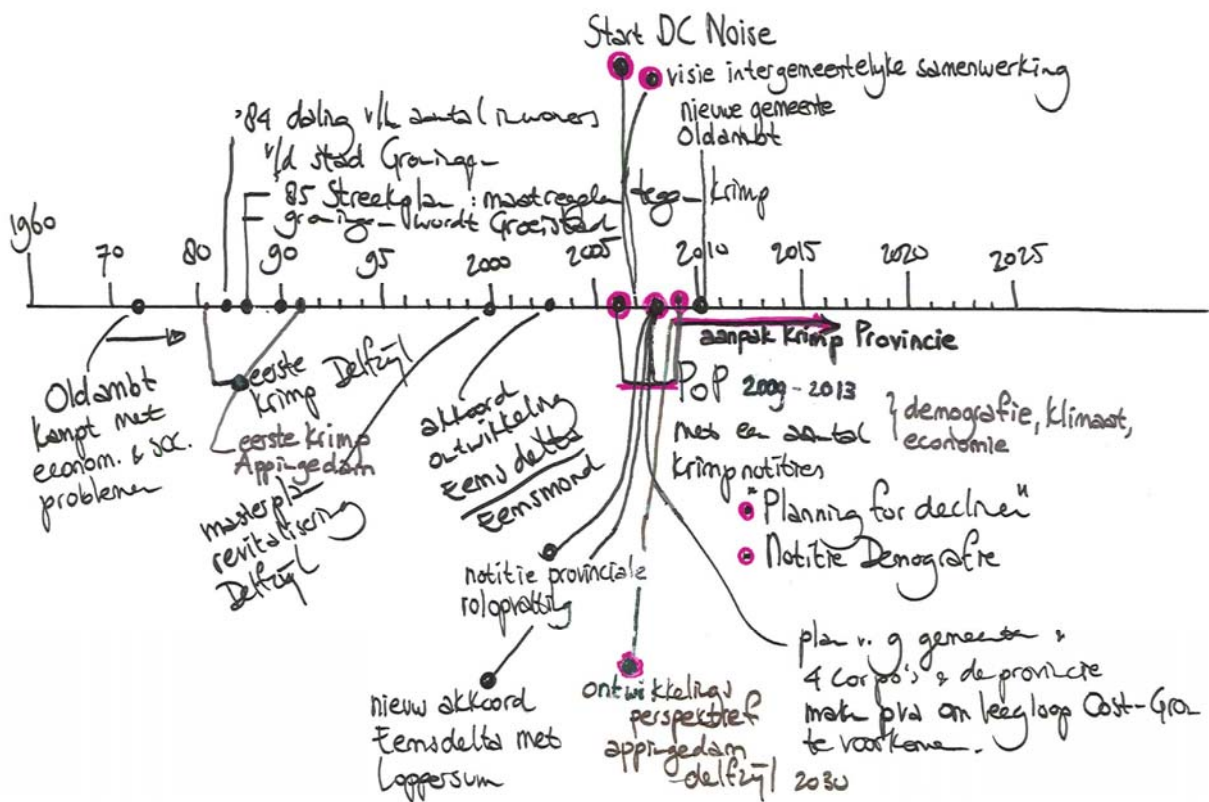 Start DC Noise
visie intergemeentelyke samenwerking
nieuwe gemeente
Oldambt
'84 daling v/h aantal inwoners
v/d stad Groningen
85 Streekplan : maatregelen tegen krimp
groningen wordt Groeistad
1960
70
80
90
95
2000
2005
2010
2015
2020
2025
aanpak krimp Provincie
Oldambt
kampt met
econom. & soc.
problemen
eerste
krimp Delfzijl
eerste krimp
Appingedam
masterplan
revitalisering
Delfzijl
akkoord
ontwikkeling
Eemsdelta
Eemsmond
PoP 2009-2013
met een aantal
krimpnotities
} demografie, klimaat,
economie
"Planning for decline"
Notitie Demografie
notitie provinciale
rolopvatting
nieuw akkoord
Eemsdelta met
Loppersum
ontwikkelings
perspektief
appingedam
-delfzijl 2030
plan v. 9 gemeenten &
4 corpo's & de provincie
maken pva om leegloop Oost-Gron
te voorkomen.